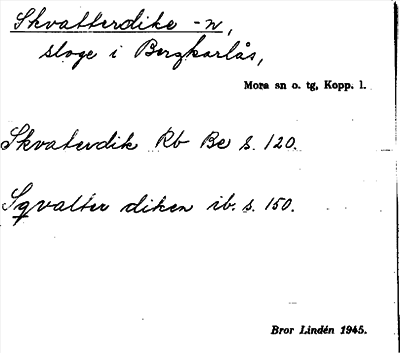 Skvatterdike -n,
sloge i Bergkarlås,
Mora sn o. tg, Kopp. l.
Skvaterdik Rb Be s. 120.
Sqvalter diken ib. s. 150.
Bror Lindén 1945.